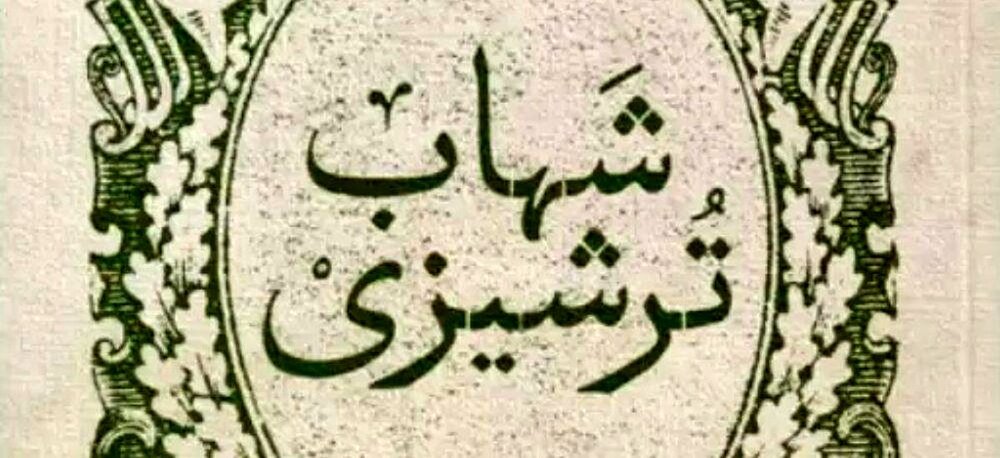 شَهاب
تُرشیزی